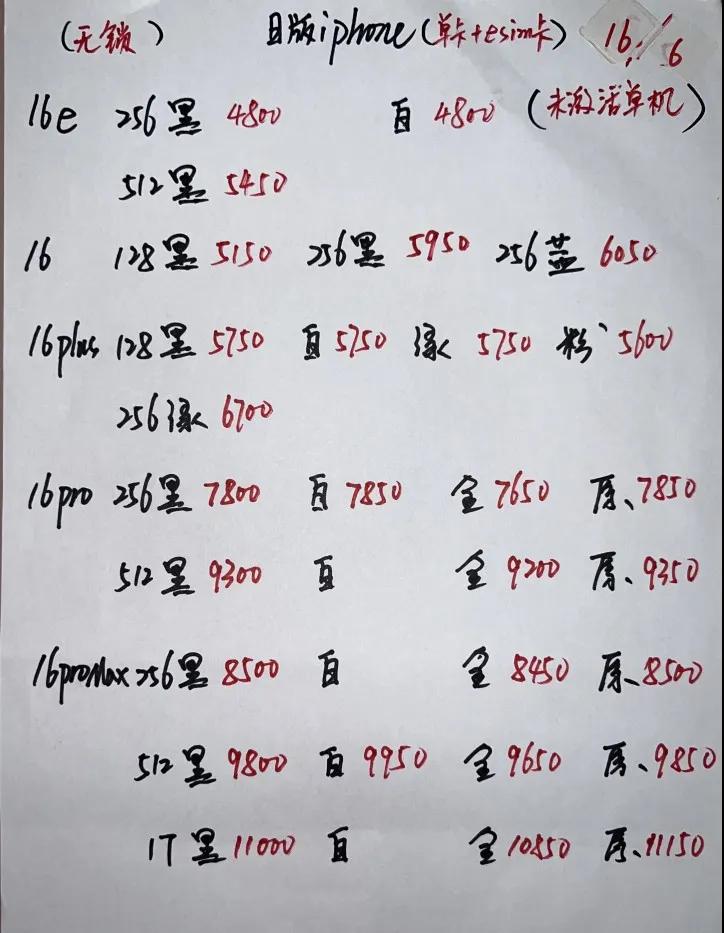 (无锁) 日版iphone(单卡+esim卡) 16/6
16e 256黑 4800 白 4800 (未激活单机)
512黑 5450
16 128黑 5150 256黑 5950 256蓝 6050
16plus 128黑 5750 白 5750 绿 5750 粉 5600
256绿 6700
16pro 256黑 7800 白 7850 金 7650 原、7850
512黑 9300 白 金 9200 原、9350
16proMax 256黑 8500 白 金 8450 原、8500
512黑 9800 白 9950 金 9650 原、9850
1T黑 11000 白 金 10850 原、11150